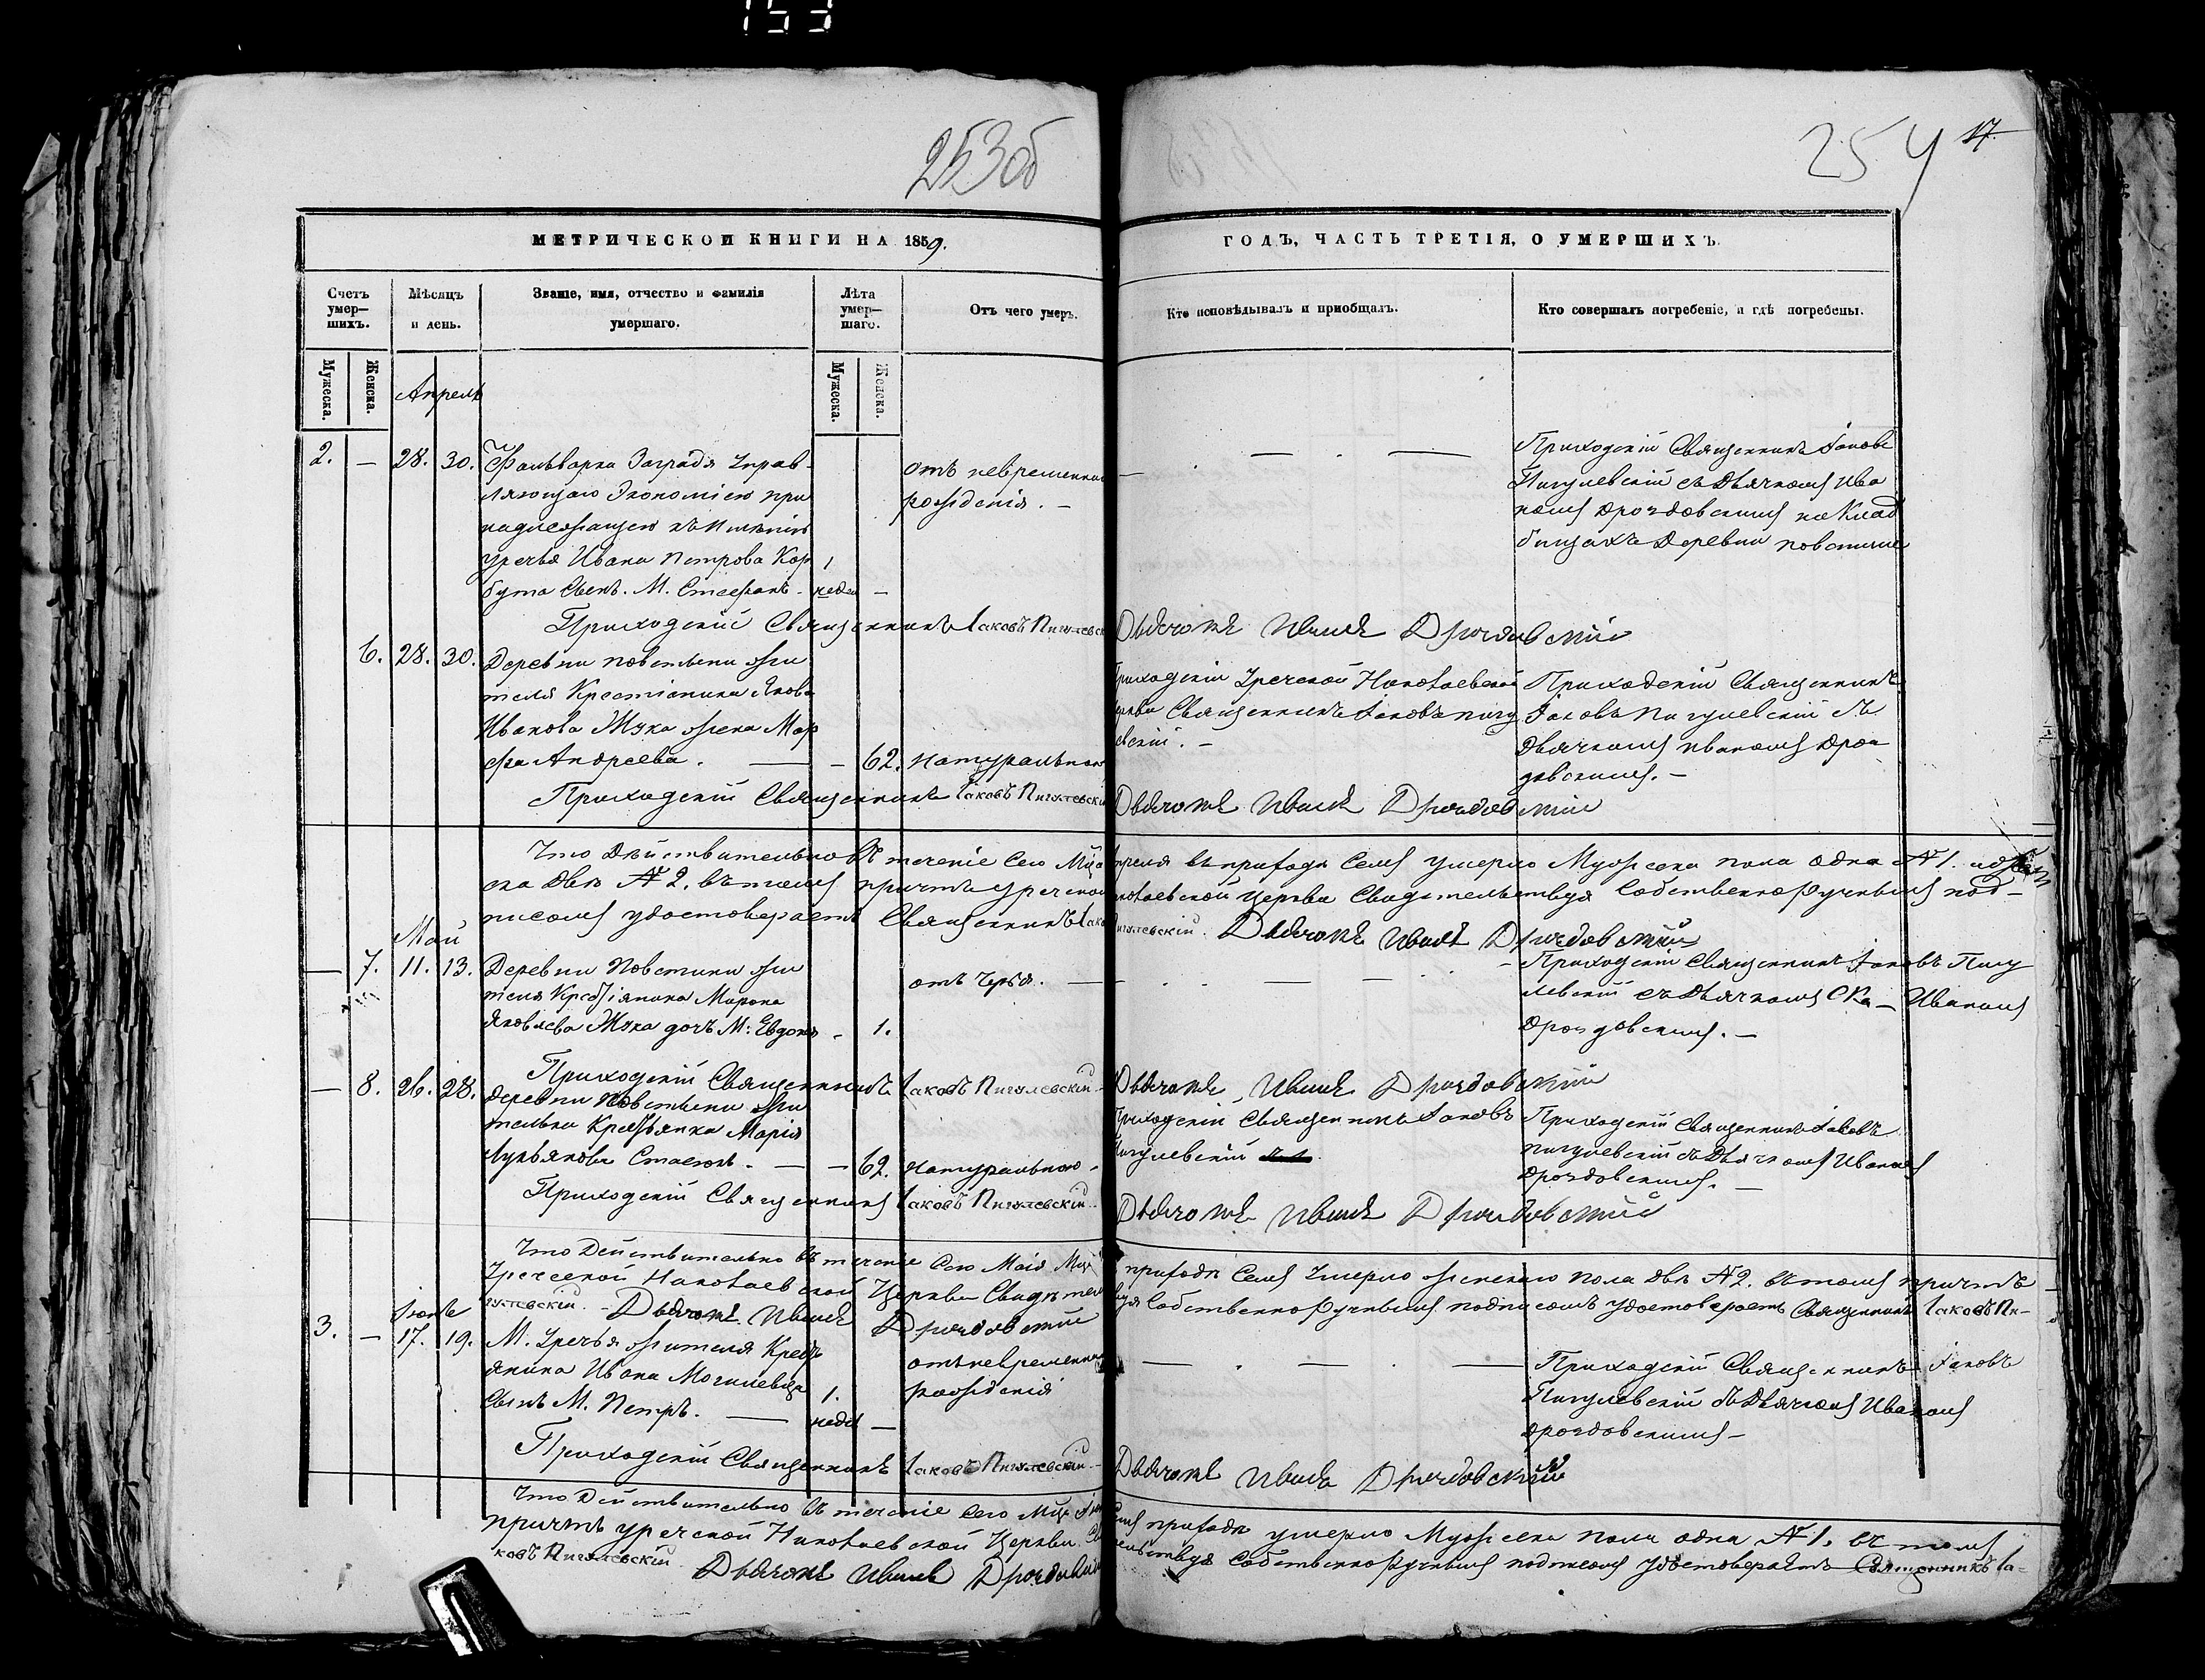 153
253об
254
17.
МЕТРИЧЕСКОЙ КНИГИ НА 1859.
ГОДЪ, ЧАСТЬ ТРЕТІЯ, О УМЕРШИХЪ.
Счетъ умер—шихъ.
Мѣсяцъ и день.
Званіе, имя, отчество и фамилія умершаго.
Лѣта умер—шаго.
Отъ чего умеръ.
Кто исповѣдывалъ и пріобщалъ.
Кто совершалъ погребеніе, и гдѣ погребены.
Мужеска.
Женска.
Мужеска.
Женска.
Апрель
2. — 28. 30.
Фальварка Заградя Управ-
ляющаго Экономіею при
надлежащею къ Имѣнію
Уречья Ивана Петрова Кор
бута Сынъ. М. Стефанъ.
1 недел —
отъ невременна
рожденія. —
Приходскій Священникъ Іаковъ
Пигулевскій съ Дьячкомъ Ива
номъ Дроздовскимъ на Клад
бищахъ Деревни
Приходскій Священникъ Іаковъ Пигулевск
Дьячокъ Иванъ Дроздовскій
6. 28. 30.
Деревни Повстыни жи
теля Крестіянина Якова
Иванова Жука жена Мар
фа Андреева. — — 62. натурально
Приходскій Уречской Николаевской
Церкви Священникъ Іаковъ Пигу
евскій. —
Приходскій Священникъ
Іаковъ Пигулевскій съ
Дьячкомъ Иваномъ Дроз
довскимъ. —
Приходскій Священникъ Іаковъ Пигулевскій
Дьячокъ Иванъ Дроздовскій
Что Дѣйствительно въ теченіе Сего Мца Апреля въ приходѣ Семъ умерло Мужеска пола одна № 1. и Жен
ска двѣ № 2. въ томъ причтъ Уречской Николаевской Церкви Свидетельствуя Собственноручнымъ под-
писомъ удостоверяетъ Священникъ Іаковъ Пигулевскій. Дьячокъ Иванъ Дроздовскій
Май
— 7. 11. 13.
Деревни Повстыни жи
теля Крестіянина Мирона
Яковлева Жука дочь М: Евдокія - 1.
отъ Червя. —
Приходскій Священникъ Іаковъ Пигу
левскій съ Дьячкомъ Иваномъ
Дроздовскимъ. —
Приходскій Священникъ Іаковъ Пигулевскій
Дьячокъ, Иванъ Дроздовскій
— 8. 26. 28.
Деревни Повстыни жи
телька Крестьянка Марія
Лукьянова — — 62. натурально
Приходскій Священникъ Іаковъ
Пигулевскій
Приходскій Священникъ Іаковъ
Пигулевскій съ Дьячкомъ Иваномъ
Дроздовскимъ. —
Приходскій Священникъ Іаковъ Пигулевскій
Дьячокъ Иванъ Дроздовскій
Что Действительно въ теченіе Сего Маія Мца приходѣ Семъ Умерло женскаго пола двѣ № 2. въ томъ причтъ
Уреческой Николаевской Церкви Свидетельствуя Собственноручнымъ подписомъ удостоверяетъ Священникъ Іаковъ Пи-
гулевскій. — Дьячокъ Иванъ Дроздовскій
Іюнь
3. — 17. 19.
М. Уречья жителя Кресть
янина Ивана Могилевца
Сынъ М. Петръ. — 1. недел —
отъ невременна
рожденія
Приходскій Священникъ Іаковъ
Пигулевскій съ Дьячкомъ Иваномъ
Дроздовскимъ —
Приходскій Священникъ Іаковъ Пигулевскій
Дьячокъ Иванъ Дроздовскій
Что Действительно въ теченіе Сего Мца Семъ приходѣ умерло Мужеска пола одна № 1. въ томъ
причтъ Уречской Николаевской Церкви Свидетельствуя Собственноручнымъ подписомъ удостоверяетъ Священникъ Іа-
ковъ Пигулевскій. Дьячокъ Иванъ Дроздовскій